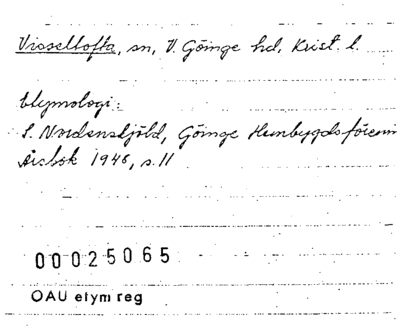 Visseltofta, sn, V. Göinge hd, Krist. l.
Etymologi:
S. Nordenskjöld, Göinge Hembygdsförenin
Årsbok 1946, s. 11
00025065
OAU etym reg